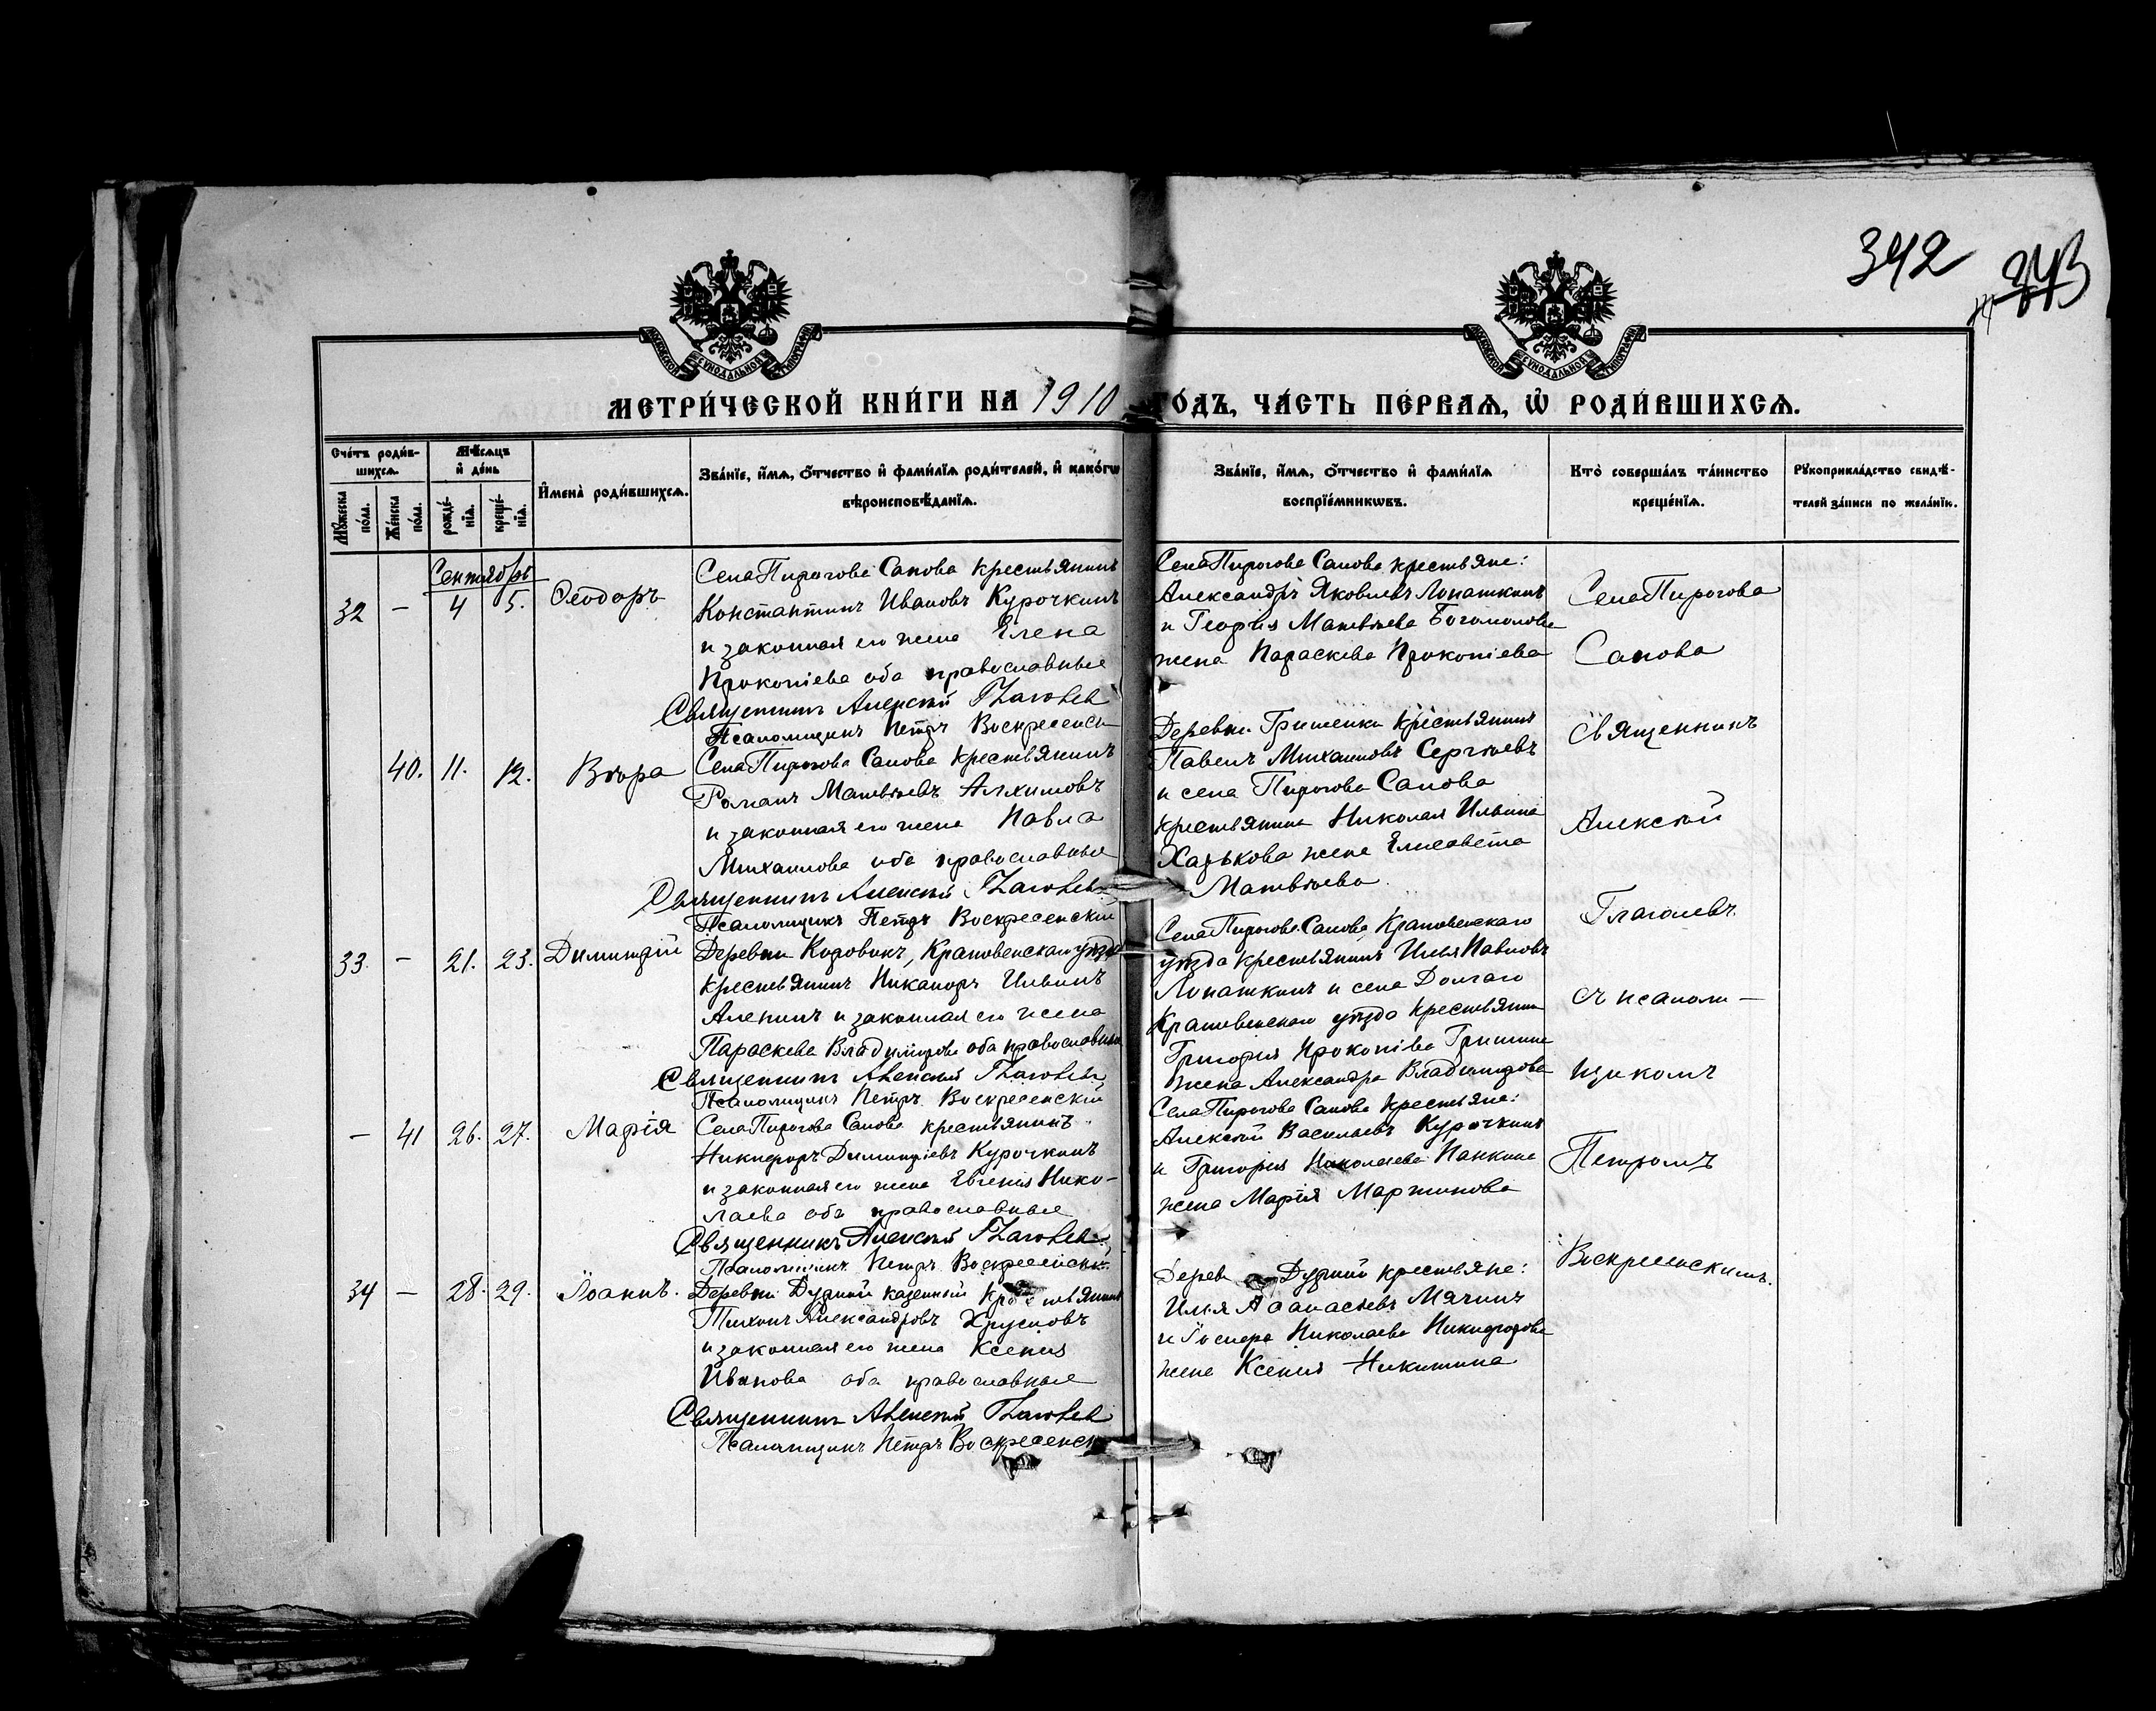 342 343
МОСКОВСКОЙ СѴНОДАЛЬНОЙ ТИПОГРАФІИ
МОСКОВСКОЙ СѴНОДАЛЬНОЙ ТИПОГРАФІИ
МЕТРИ́ЧЕСКОЙ КНИ́ГИ НА 1910 ГО́ДЪ, ЧА́СТЬ ПЕ́РВАѦ, Ѡ҆ РОДИ́ВШИХСѦ.
Сче́тъ роди́в-
шихсѧ.
Мꙋ́жеска по́ла.
Же́нска по́ла.
Мѣ́сѧцъ
и҆ де́нь
рожде́-
нїѧ.
креще́-
нїѧ.
И҆мена̀ роди́вшихсѧ.
Зва́нїе, и҆́мѧ, ѻ҆́тчество и҆ фами́лїѧ роди́телей, и҆ како́гѡ
вѣроисповѣ́данїѧ.
Зва́нїе, и҆́мѧ, ѻ҆́тчество и҆ фами́лїѧ
воспрїе́мникѡвъ.
Кто̀ соверша́лъ та́инство
креще́нїѧ.
Рꙋкоприкла́дство свидѣ́-
телей за́писи по жела́нїю.
Сентябрь
32 — 4 5. Ѳеодоръ
Села Пирогова Сапова крестьянинъ
Константинъ Ивановъ Курочкинъ
и законная его жена Елена
Прокопіева оба православные
Священникъ Алексій Глаголев
Псаломщикъ Петръ Воскресенск
Села Пирогова Сапова крестьяне:
Александръ Яковлевъ Лопашкинъ
и Георгія Матвѣева Богомолова
жена Параскева Прокопіева
40. 11. 12. Вѣра
Села Пирогова Сапова крестьянинъ
Романъ Матвѣевъ Алхимовъ
и законная его жена Павла
Михаилова оба православные
Священникъ Алексій Глаголев
Псаломщикъ Петръ Воскресенскій
Деревни Гришенки крестьянинъ
Павелъ Михаиловъ Сергѣевъ
и села Пирогова Сапова
крестьянина Николая Ильина
Харькова жена Елисавета
Матвѣева
33. — 21. 23. Димитрій
Деревни Коровокъ, Крапивенскаго уѣзда
крестьянинъ Никаноръ Ильинъ
Аленинъ и законная его жена
Параскева Владимірова оба православные
Священникъ Алексій Глаголев
Псаломщикъ Петръ Воскресенскій
Села Пирогова Сапова, Крапивенскаго
уѣзда крестьянинъ Илья Павловъ
Лопашкинъ и села Долгаго
Крапивенскаго уѣзда крестьянина
Григорія Прокопіева Гришина
жена Александра Владимірова
— 41 26. 27. Марія
Села Пирогова Сапова крестьянинъ
Никифоръ Димитріевъ Курочкинъ
и законная его жена Евгенія Нико-
лаева оба православные
Священникъ Алексій Глаголев
Псаломщикъ Петръ Воскресенск
Села Пирогова Сапова крестьяне:
Алексѣй Васильевъ Курочкинъ
и Григорія Николаева Панкина
жена Марія Мартинова
34 — 28. 29. Іоаннъ.
Деревни Дурной казенный крестьянинъ
Тихонъ Александровъ Хрусловъ
и законная его жена Ксенія
Иванова оба православные
Священникъ Алексій Глаголев
Псаломщикъ Петръ Воскресенск
Дерев Дурной крестьяне:
Илья Аѳанасьевъ Мячинъ
и Іосифа Николаева Никифорова
жена Ксенія Никитина
Села Пирогова
Сапова
Священникъ
Алексѣй
Глаголевъ
съ псалом—
щикомъ
Петромъ
Воскресенскимъ.